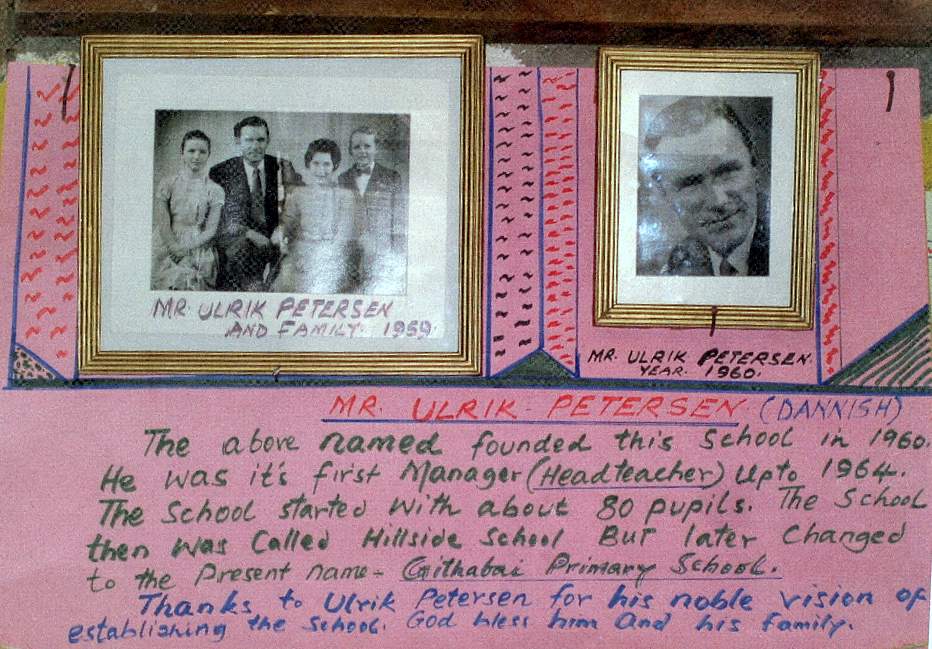 MR. ULRIK PETERSEN
AND FAMILY. 1959.
MR. ULRIK PETERSEN
YEAR. 1960.
MR. ULRIK PETERSEN (DANNISH)
The above named founded this School in 1960.
He was it's first Manager (Headteacher) Upto 1964.
The School started with about 80 pupils. The School
then was Called Hillside School But later Changed
to the Present name - Githabai Primary School.
Thanks to Ulrik Petersen for his noble vision of
establishing the School. God bless him and his family.